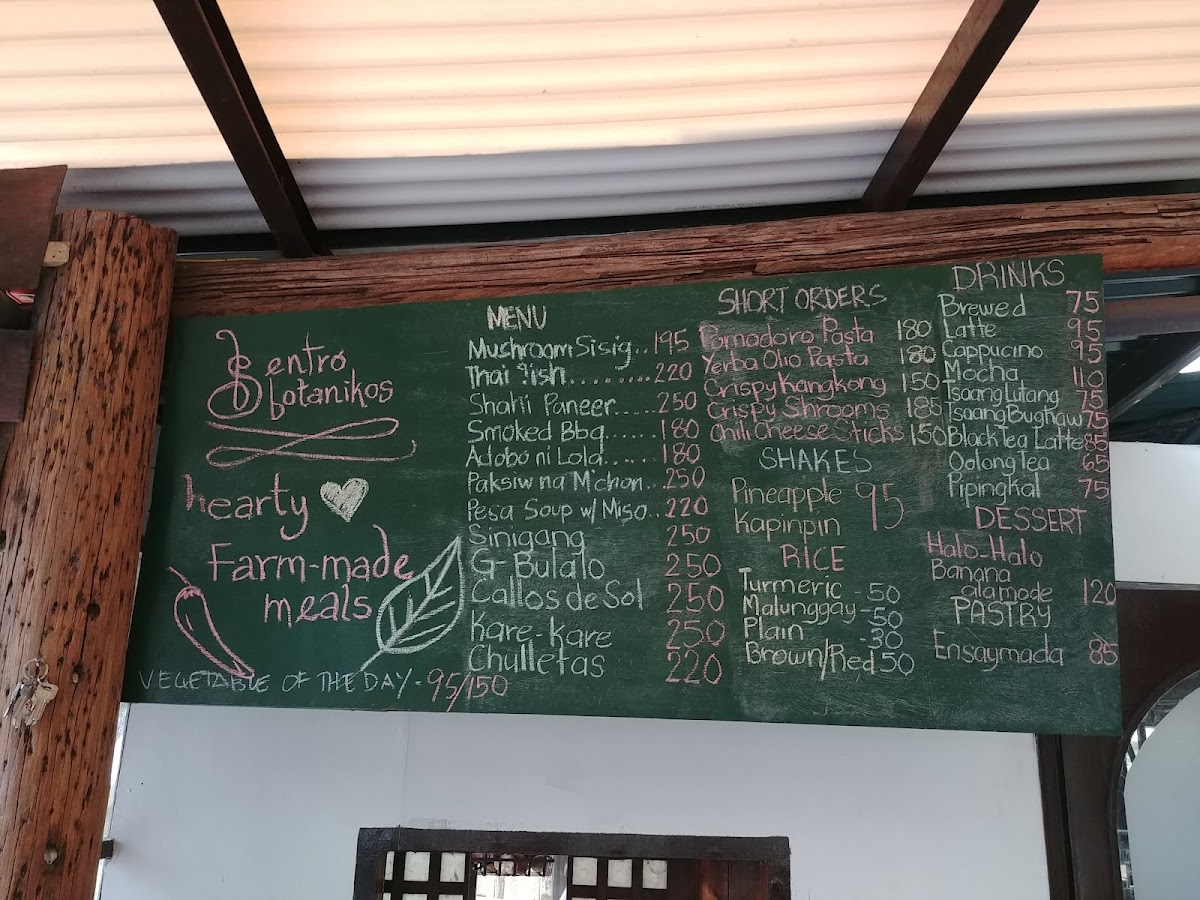 Sentro
botanikos
hearty
Farm-made
meals
VEGETABLE OF THE DAY - 95/150
MENU
Mushroom Sisig..195
Thai fish.........220
Shahi Paneer.....250
Smoked Bbq......180
Adobo ni Lola......180
Paksiw na M'chon..250
Pesa Soup w/ Miso..220
Sinigang 250
G-Bulalo 250
Callos de Sol 250
Kare-Kare 250
Chulletas 220
SHORT ORDERS
Pomodoro Pasta 180
Yerba Olio Pasta 180
Crispy Kangkong 150
Crispy Shrooms 185
Chili Cheese Sticks 150
SHAKES
Pineapple 95
Kapinpin
RICE
Turmeric -50
Malunggay -50
Plain -30
Brown/Red 50
DRINKS
Brewed 75
Latte 95
Cappucino 95
Mocha 110
Tsaang Lutang 75
Tsaang Bughaw 75
Black Tea Latte 85
Oolong Tea 65
Pipingkal 75
DESSERT
Halo-Halo
Banana
alamode 120
PASTRY
Ensaymada 85